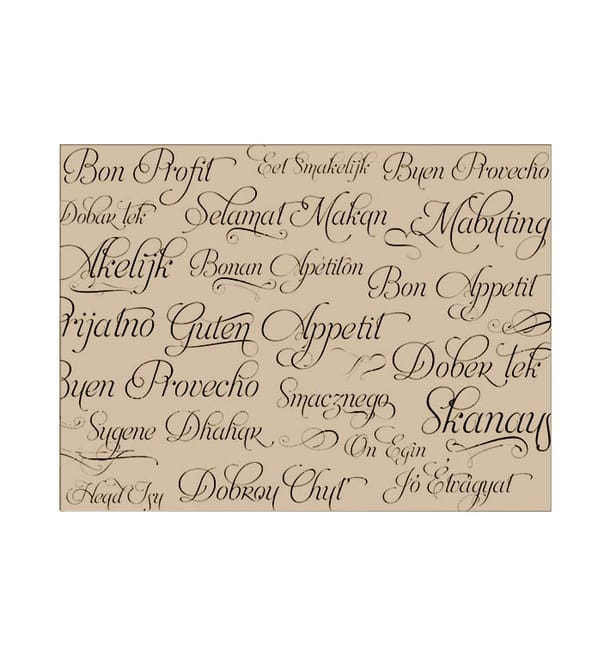 Bon Profit Eet Smakelijk Buen Provecho
Dobar tek Selamat Makan Mabuting
Akelijk Bonan Apétitôn Bon Appetit
rijatno Guten Appetit
Dober tek
Buen Provecho Smacznego Skanaus
Sygene Dhahar On Egin
Dobroy Chyt' Jó Étvágyat